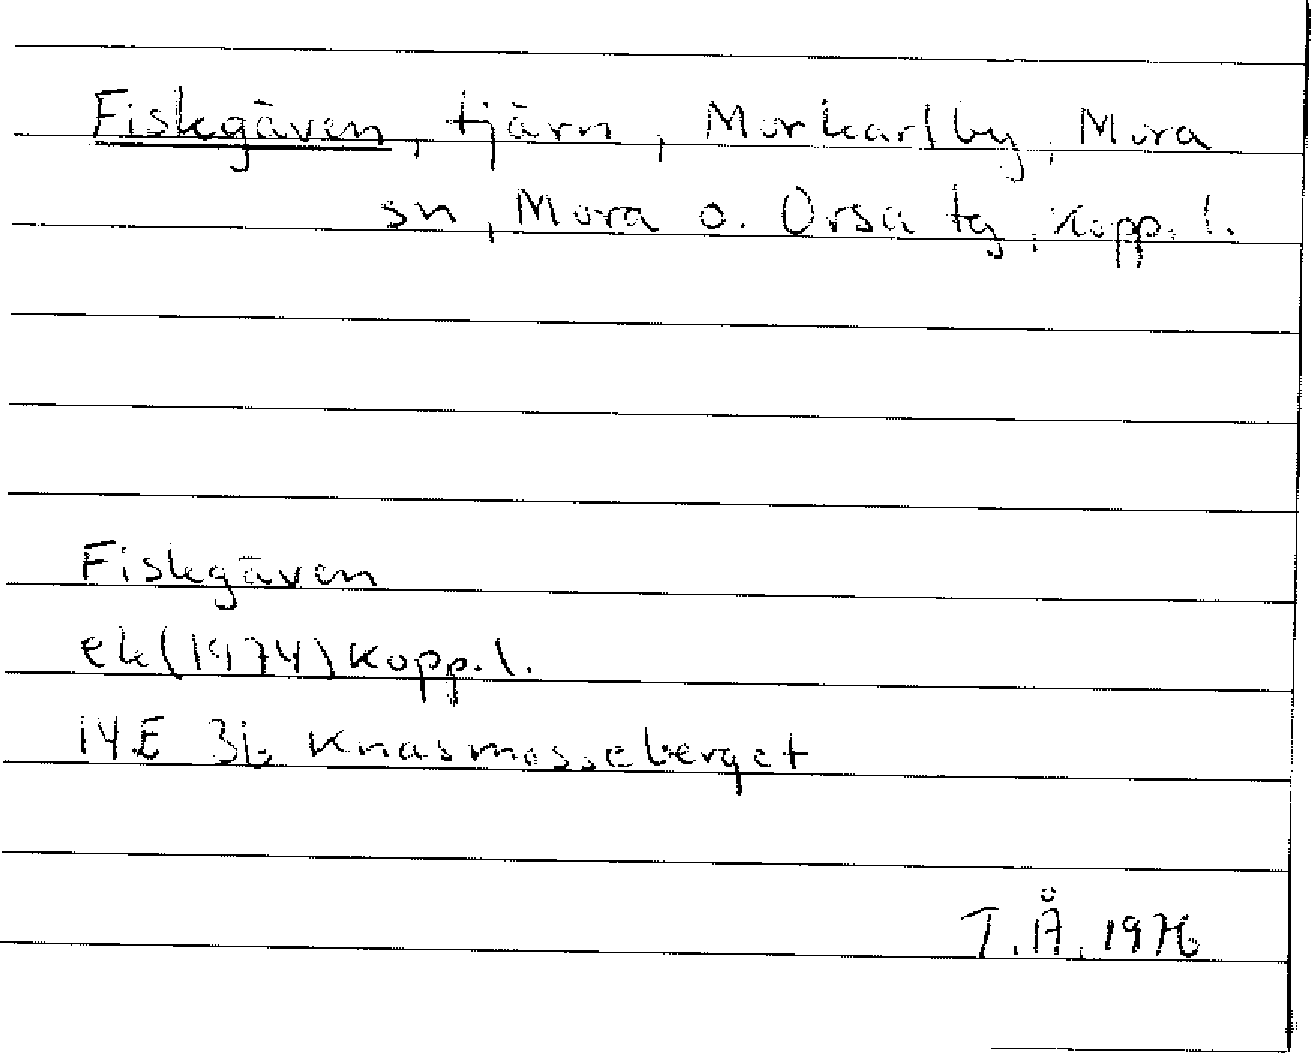 Fiskgäven, tjärn, Morkarlby, Mora
sn, Mora o. Orsa tg, Kopp. l.
Fiskgäven
ek (1974) Kopp. l.
14E 3b Knasmosseberget
T. Å. 1976